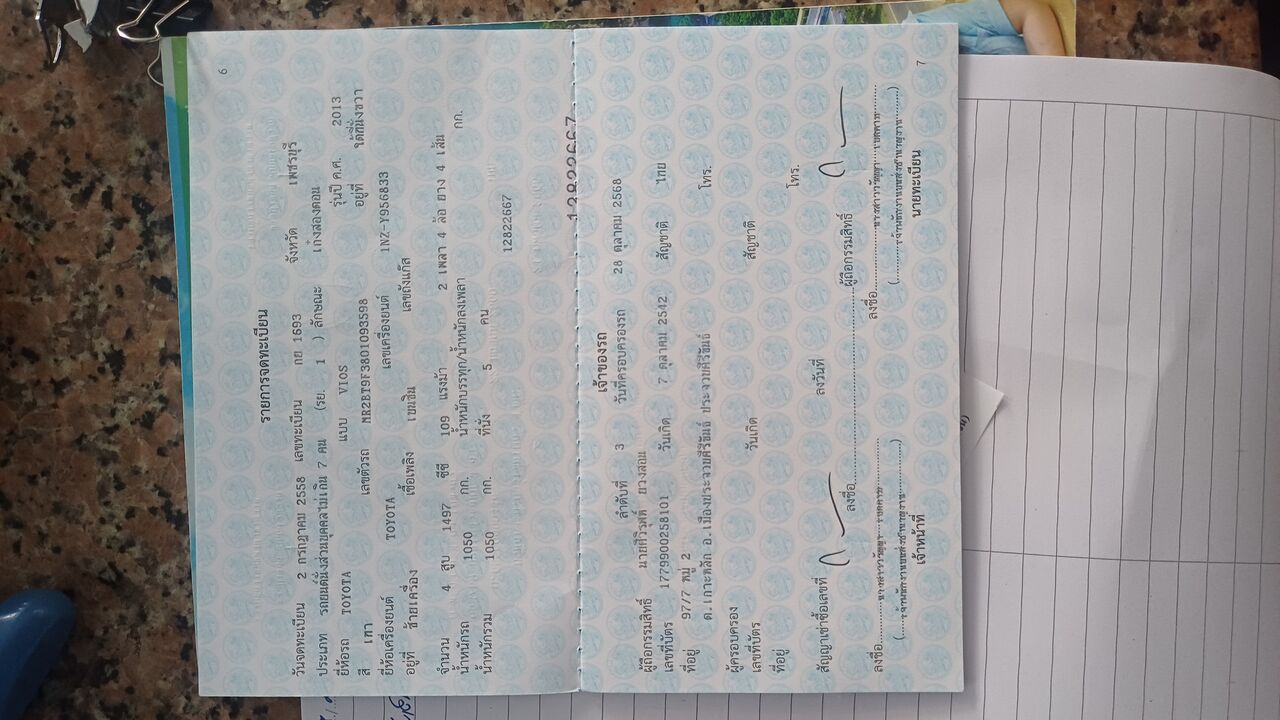 6
รายการจดทะเบียน
วันจดทะเบียน 2 กรกฎาคม 2558 เลขทะเบียน กย 1693 จังหวัด เพชรบุรี
ประเภท รถยนต์นั่งส่วนบุคคลไม่เกิน 7 คน (รย. 1 ) ลักษณะ เก๋งสองตอน
ยี่ห้อรถ TOYOTA แบบ VIOS รุ่นปี ค.ศ. 2013
สี เทา เลขตัวรถ MR2BT9F3801093598 อยู่ที่ ใต้ที่นั่งขวา
ยี่ห้อเครื่องยนต์ TOYOTA เลขเครื่องยนต์ 1NZ-Y956833
อยู่ที่ ซ้ายเครื่อง เชื้อเพลิง เบนซิน เลขถังแก๊ส
จำนวน 4 สูบ 1497 ซีซี 109 แรงม้า 2 เพลา 4 ล้อ ยาง 4 เส้น
น้ำหนักรถ 1050 กก. น้ำหนักบรรทุก/น้ำหนักลงเพลา กก.
น้ำหนักรวม 1050 กก. ที่นั่ง 5 คน
12822667
12822667
เจ้าของรถ
ลำดับที่ 3 วันที่ครอบครองรถ 28 ตุลาคม 2568
ผู้ถือกรรมสิทธิ์ นายศิวิรุตติ์ ยวงลอน
เลขที่บัตร 1779900258101 วันเกิด 7 ตุลาคม 2542 สัญชาติ ไทย
ที่อยู่ 97/7 หมู่ 2 โทร.
ต.เกาะหลัก อ.เมืองประจวบคีรีขันธ์ ประจวบคีรีขันธ์
ผู้ครอบครอง
เลขที่บัตร วันเกิด สัญชาติ
ที่อยู่ โทร.
สัญญาเช่าซื้อเลขที่ ลงวันที่
ลงชื่อ ผู้ถือกรรมสิทธิ์
ลงชื่อ ลงชื่อ
เจ้าหน้าที่ นายทะเบียน
7